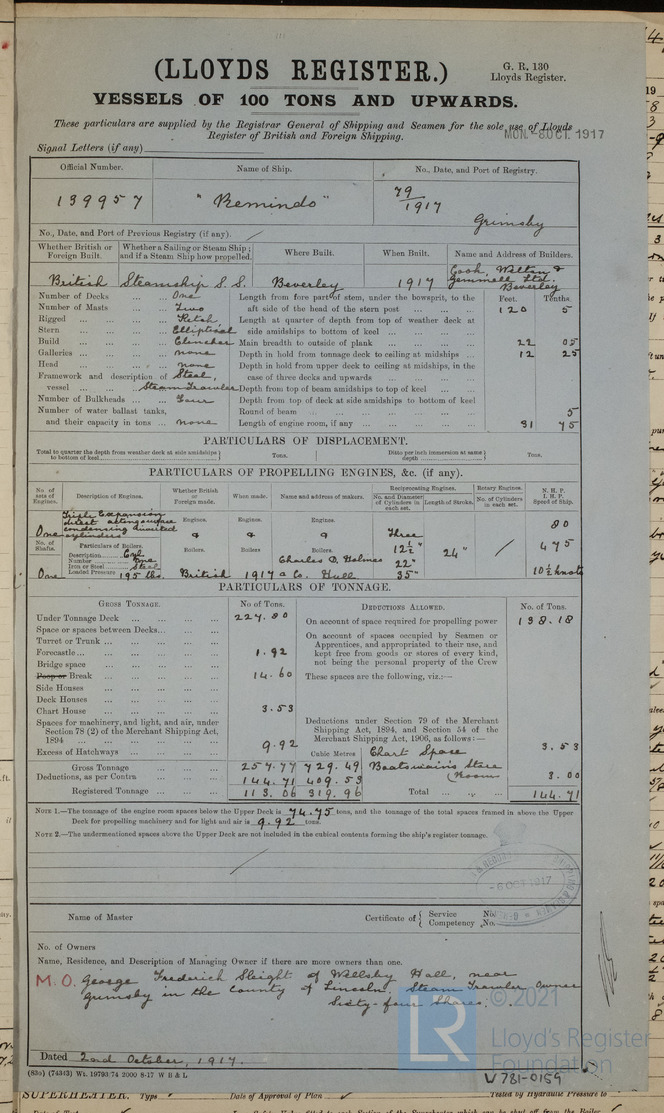 (LLOYDS REGISTER.)
G. R. 130
Lloyds Register.
VESSELS OF 100 TONS AND UPWARDS.
These particulars are supplied by the Registrar General of Shipping and Seamen for the sole use of Lloyds
Register of British and Foreign Shipping.
MON.-8 OCT 1917
Signal Letters (if any)
Official Number. Name of Ship. No., Date, and Port of Registry.
139957 "Remindo" 79/1917
Grimsby
No., Date, and Port of Previous Registry (if any).
Whether British or Foreign Built. Whether a Sailing or Steam Ship; and if a Steam Ship how propelled. Where Built. When Built. Name and Address of Builders.
British Steamship S.S. Beverley 1917 Cook, Welton & Gemmell Ltd. Beverley
Number of Decks ... ... One Length from fore part of stem, under the bowsprit, to the Feet. Tenths.
Number of Masts ... ... Two aft side of the head of the stern post ... ... ... 120 5
Rigged ... ... ... Ketch Length at quarter of depth from top of weather deck at
Stern ... ... ... Elliptical side amidships to bottom of keel ... ... ... ...
Build ... ... ... Clencher Main breadth to outside of plank ... ... ... ... 22 05
Galleries ... ... ... none Depth in hold from tonnage deck to ceiling at midships ... 12 25
Head ... ... ... none Depth in hold from upper deck to ceiling at midships, in the
Framework and description of Steel, case of three decks and upwards ... ... ... ...
vessel ... ... Steam Trawler Depth from top of beam amidships to top of keel ... ...
Number of Bulkheads ... ... Four Depth from top of deck at side amidships to bottom of keel
Number of water ballast tanks, Round of beam ... ... ... ... ... 5
and their capacity in tons ... none Length of engine room, if any ... ... ... ... 31 75
PARTICULARS OF DISPLACEMENT.
Total to quarter the depth from weather deck at side amidships to bottom of keel Tons. Ditto per inch immersion at same depth Tons.
PARTICULARS OF PROPELLING ENGINES, &c. (if any).
No. of sets of Engines. Description of Engines. Whether British or Foreign made. When made. Name and address of makers. Reciprocating Engines. Rotary Engines. N. H. P. I. H. P. Speed of Ship.
No. and Diameter of Cylinders in each set. Length of Stroke. No. of Cylinders in each set.
Triple Expansion
direct acting surface
condensing inverted
One cylinders
Engines. Engines. Engines.
80
Three
No. of Shafts. Particulars of Boilers. Boilers. Boilers. Boilers. 12½" 24" 475
Description
Number One
Iron or Steel Steel
Charles D. Holmes 22"
One Loaded Pressure 195 lbs. British 1917 & Co. Hull 35" 10½ knots
PARTICULARS OF TONNAGE.
GROSS TONNAGE. No of Tons. DEDUCTIONS ALLOWED. No. of Tons.
Under Tonnage Deck ... ... ... 224.80 On account of space required for propelling power 138.18
Space or spaces between Decks ... ... ... On account of spaces occupied by Seamen or
Turret or Trunk ... ... ... ... Apprentices, and appropriated to their use, and
Forecastle ... ... ... ... 1.92 kept free from goods or stores of every kind,
Bridge space ... ... ... ... not being the personal property of the Crew
Poop or Break ... ... ... ... 14.60 These spaces are the following, viz.:—
Side Houses ... ... ... ...
Deck Houses ... ... ... ...
Chart House ... ... ... ... 3.53
Spaces for machinery, and light, and air, under Deductions under Section 79 of the Merchant
Section 78 (2) of the Merchant Shipping Act, Shipping Act, 1894, and Section 54 of the
1894 ... ... ... 9.92 Merchant Shipping Act, 1906, as follows:—
Excess of Hatchways ... ... ... Cubic Metres Chart Space 3.53
Gross Tonnage ... ... 257.77 729.49 Boatswain's Store
Deductions, as per Contra ... ... 144.71 409.53 Room 3.00
Registered Tonnage ... ... 113.06 319.96 Total ... ... 144.71
NOTE 1.—The tonnage of the engine room spaces below the Upper Deck is 74.75 tons, and the tonnage of the total spaces framed in above the Upper
Deck for propelling machinery and for light and air is 9.92 tons.
NOTE 2.—The undermentioned spaces above the Upper Deck are not included in the cubical contents forming the ship's register tonnage.
-6 OCT 1917
Name of Master Certificate of Service No. Competency No.
No. of Owners
Name, Residence, and Description of Managing Owner if there are more owners than one.
M.O. George Frederick Sleight of Wellsby Hall, near
Grimsby in the County of Lincoln. Steam Trawler Owner
Sixty-four Shares.
© 2021
LR
Lloyd's Register
Foundation
Dated 2nd October, 1917.
(83o) (74343) Wt. 19793/74 2000 8-17 W B & L
W781-0159
SUPERHEATER. Type Date of Approval of Plan Tested by Hydraulic Pressure to